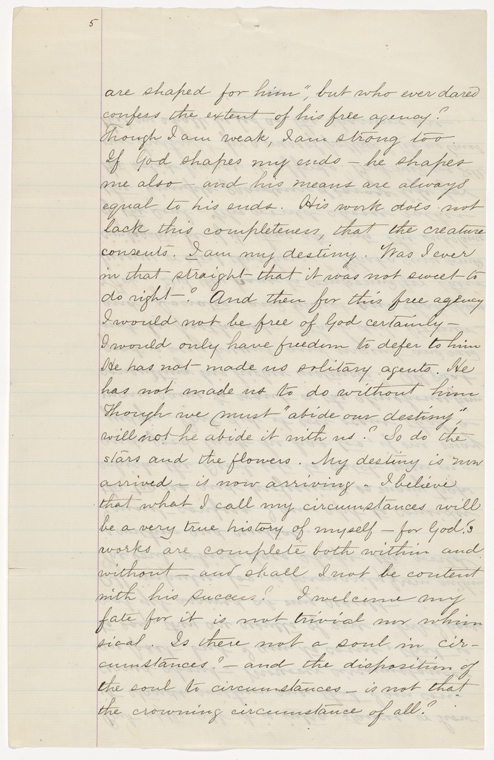 5
are shaped for him", but who ever dared
confess the extent of his free agency?
Though I am weak, I am strong too.
If God shapes my ends — he shapes
me also — and his means are always
equal to his ends. His work does not
lack this completeness, that the creature
consents. I am my destiny. Was I ever
in that straight that it was not sweet to
do right —? And then for this free agency
I would not be free of God certainly —
I would only have freedom to defer to him
He has not made us solitary agents. He
has not made us to do without him
Though we must "abide our destiny",
will not he abide it with us? So do the
stars and the flowers. My destiny is now
arrived — is now arriving. I believe
that what I call my circumstances will
be a very true history of myself — for God's
works are complete both within and
without — and shall I not be content
with his success? I welcome my
fate for it is not trivial nor whim
sical. Is there not a soul in cir-
cumstances? — and the disposition of
the soul to circumstances — is not that
the crowning circumstance of all?